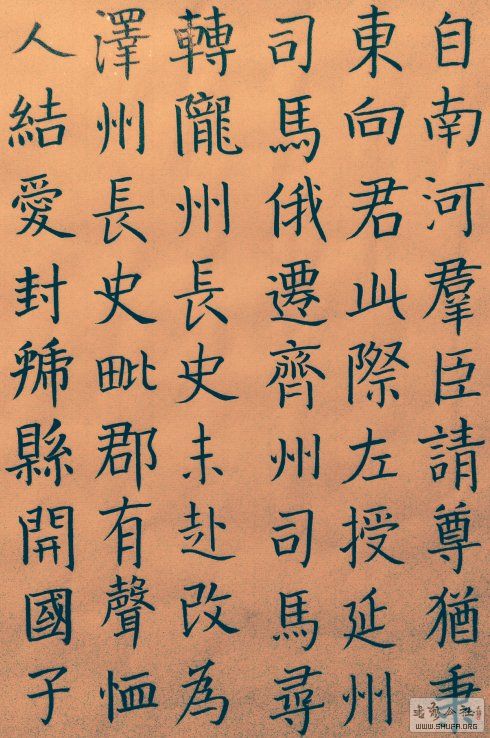 自南河羣臣請尊猶秉
東向君此際左授延州
司馬俄遷齊州司馬尋
轉隴州長史未赴改為
澤州長史毗郡有聲恤
人結愛封虢縣開國子
WWW.SHUFA.ORG